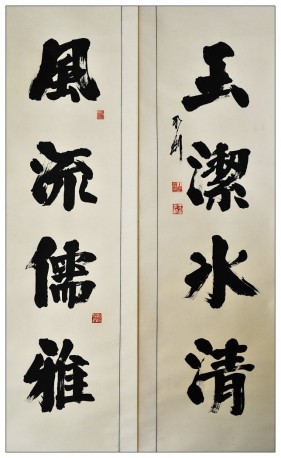 玉潔氷清
風流儒雅